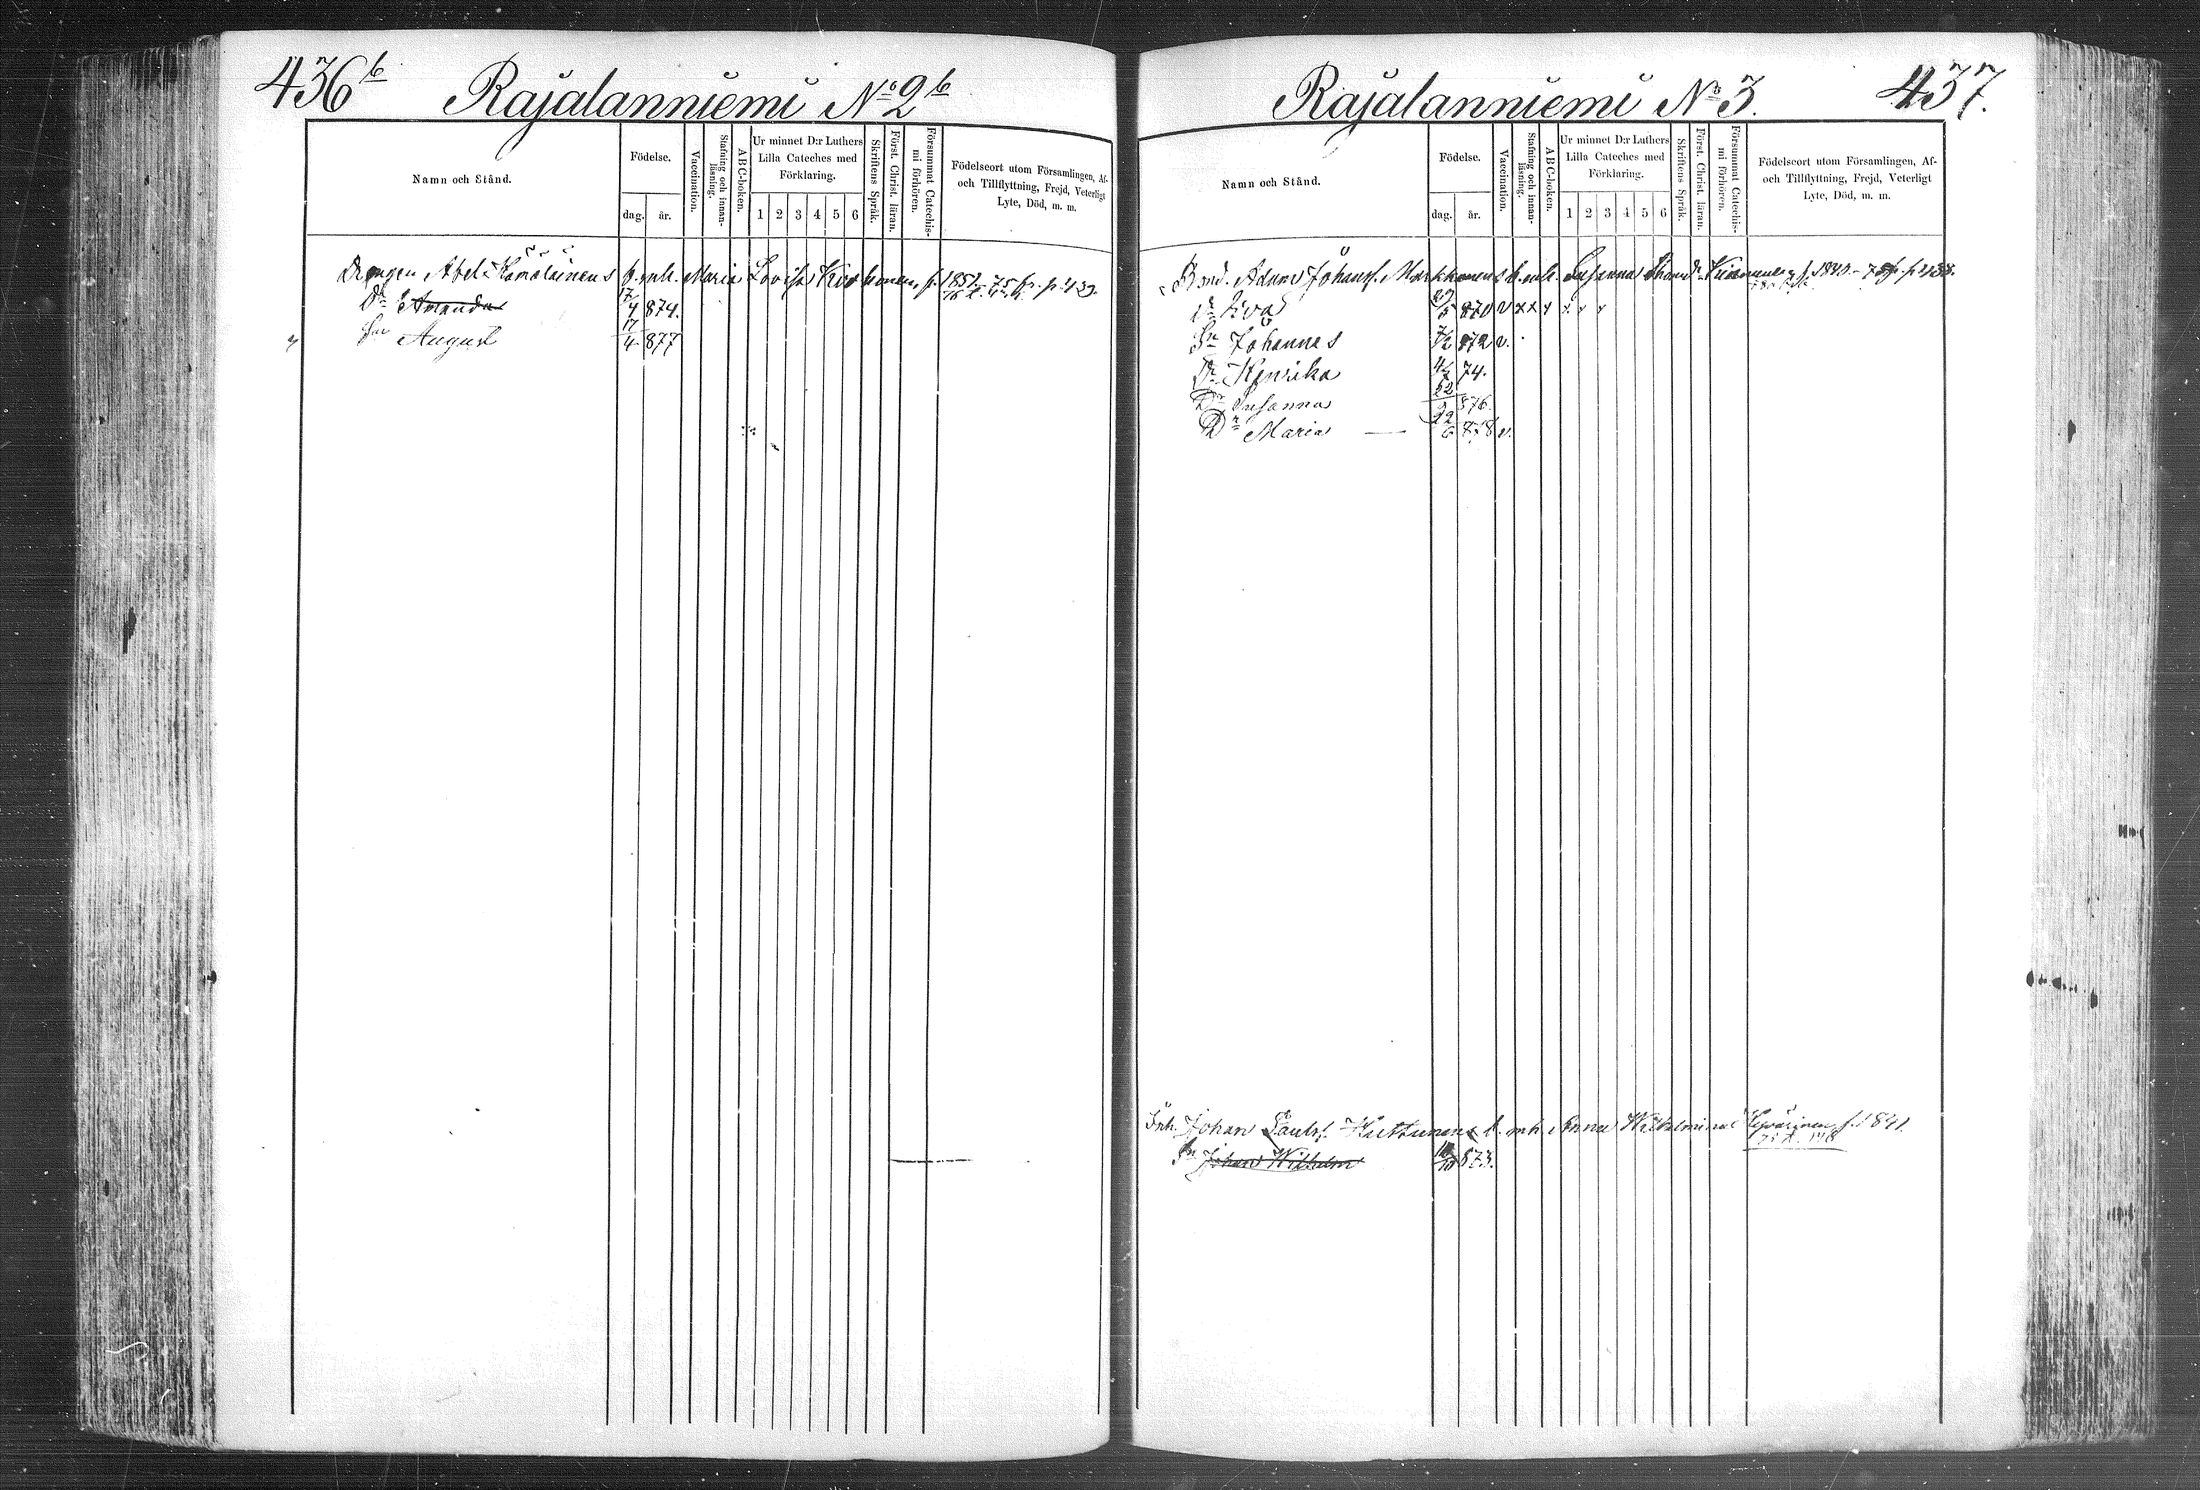 436b Rajalanniemi No 2b
Namn och Stånd.
Födelse.
dag. år.
Vaccination.
Stafning och innanläsning.
ABC-boken.
Ur minnet D:r Luthers Lilla Cateches med Förklaring.
1 2 3 4 5 6
Skriftens Språk.
Först. Christ. läran.
Försummat Catechismi förhören.
Födelseort utom Församlingen, Af- och Tillflyttning, Frejd, Veterligt Lyte, Död, m. m.
Drengen Abel Hämäläinens b. enk. Maria Lovisa f. 1851
Dr Amanda 4 874.
Sn August 17/4 877
Rajalanniemi No 3. 437.
Namn och Stånd.
Födelse.
dag. år.
Vaccination.
Stafning och innanläsning.
ABC-boken.
Ur minnet D:r Luthers Lilla Cateches med Förklaring.
1 2 3 4 5 6
Skriftens Språk.
Först. Christ. läran.
Försummat Catechismi förhören.
Födelseort utom Församlingen, Af- och Tillflyttning, Frejd, Veterligt Lyte, Död, m. m.
Bond. Adam Johanss. Markkanens b. enk. Susanna
Dr Eva 870 v
Sn Johannes 7/2 872 v.
Dr Henrika 74.
Dr Susanna 876.
Dr Maria — 22/6 878 v.
Inh. Johan Paulss. Huttunens b. mh Anna Wilhelmina f. 1841
Sn Johan Wilhelm 873.